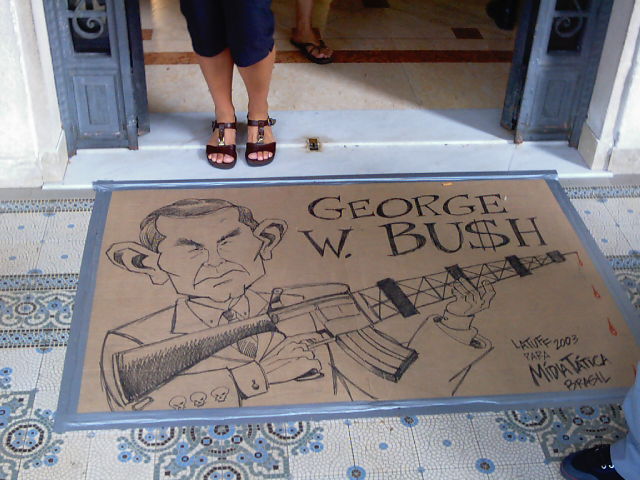 GEORGE
W. BU$H
LATUFF 2003
PARA
MÍDIA TÁTICA
BRASIL